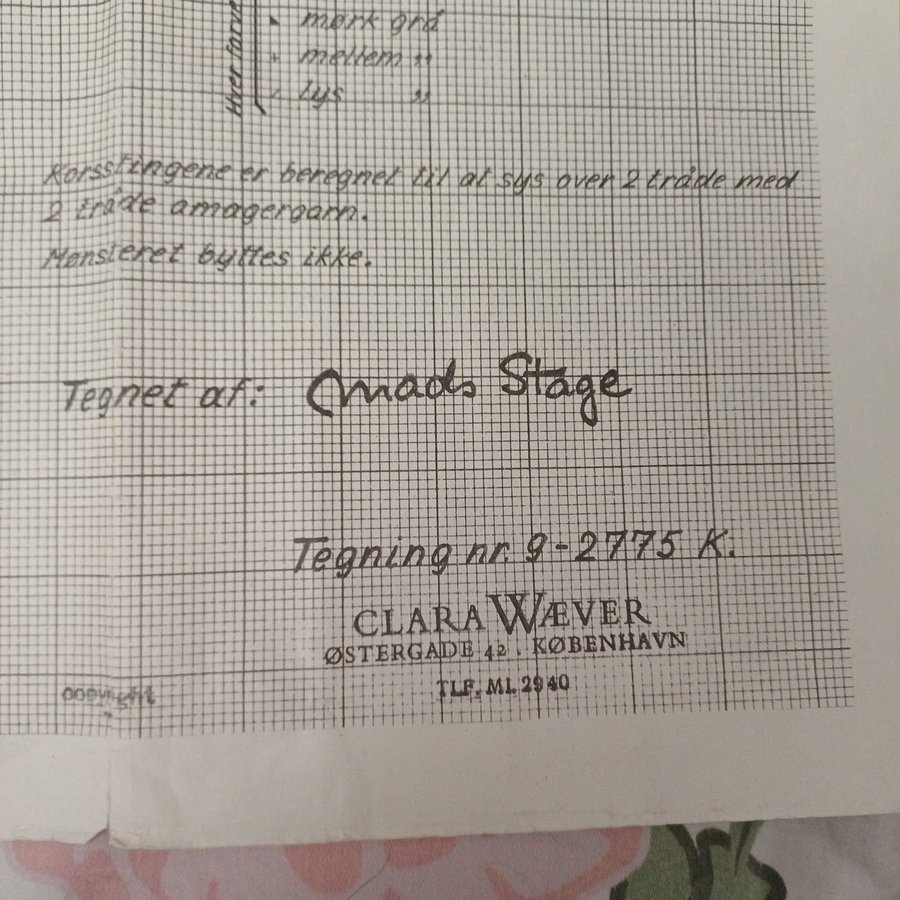 Hver farve
mørk grå
mellem "
lys "
Korsstingene er beregnet til at sys over 2 tråde med
2 tråde amagergarn.
Mønsteret byttes ikke.
Tegnet af: Mads Stage
Tegning nr. 9-2775 K.
CLARA WÆVER
ØSTERGADE 42 . KØBENHAVN
TLF. MI. 2940
copyright